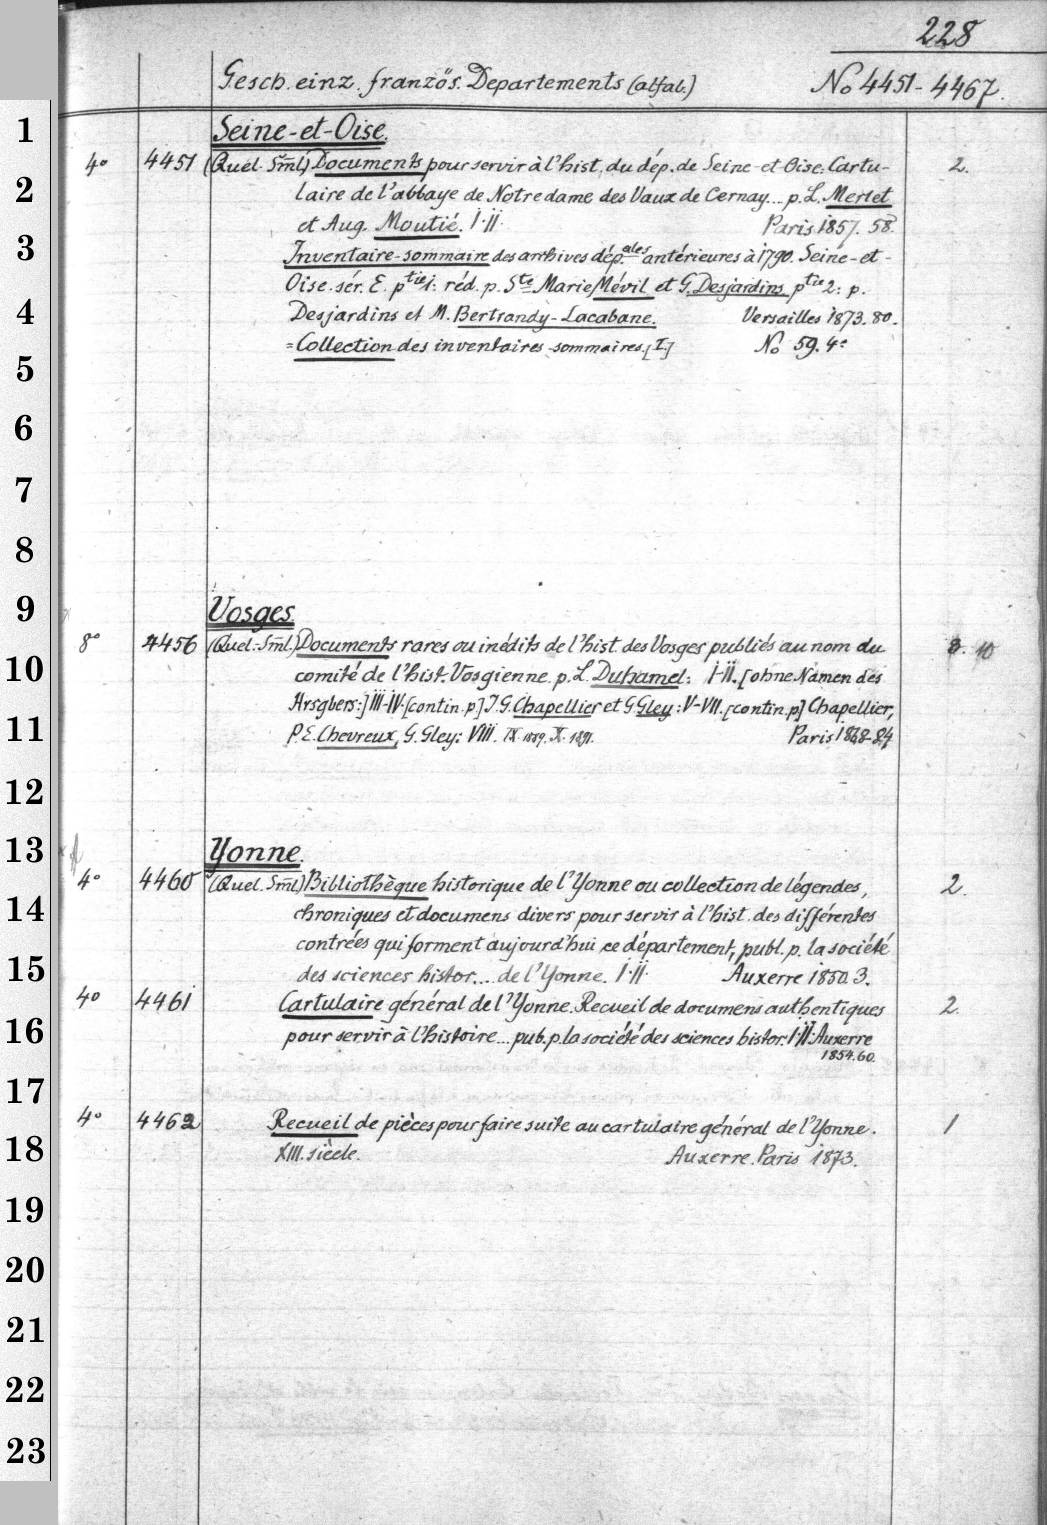 228
Gesch. einz. französ. Departements (alfab.) No 4451-4467.
1
Seine-et-Oise.
4° 4451 (Quel. Sml) Documents pour servir à l'hist. du dép. de Seine-et-Oise: Cartu- 2.
2
laire de l'abbaye de Notre dame des Vaux de Cernay... p. L. Merlet
et Aug. Moutié. I. II. Paris 1857. 58.
3
Inventaire-sommaire des archives dép.ales antérieures à 1790. Seine-et-
Oise. sér. E. ptie 1: réd. p. Ste Marie Mévil et G. Desjardins ptie 2: p.
4
Desjardins et M. Bertrandy-Lacabane. Versailles 1873. 80.
=Collection des inventaires-sommaires. [I.] No 59. 4°
5
6
7
8
9
Vosges
8° 4456 (Quel. Sml.) Documents rares ou inédits de l'hist. des Vosges publiés au nom du 10
10
comité de l'hist. Vosgienne. p. L. Duhamel: I-II. [ohne Namen des
Hrsgbers:] III-IV. [contin. p] J. G. Chapellier et G. Gley: V-VII. [contin. p] Chapellier,
11
P. E. Chevreux, G. Gley: VIII. IX. 1889. X. 1891. Paris 1868-84
12
13
Yonne.
4° 4460 (Quel. Sml) Bibliothèque historique de l'Yonne ou collection de légendes, 2.
14
chroniques et documens divers pour servir à l'hist. des différentes
contrées qui forment aujourd'hui ce département, publ. p. la société
15
des sciences histor.... de l'Yonne. I. II. Auxerre 1850. 3.
4° 4461 Cartulaire général de l'Yonne. Recueil de documens authentiques 2.
16
pour servir à l'histoire... pub. p. la société des sciences histor. I. II. Auxerre
1854. 60.
17
4° 4462 Recueil de pièces pour faire suite au cartulaire général de l'Yonne. 1
18
XIII. siècle. Auxerre. Paris 1873.
19
20
21
22
23